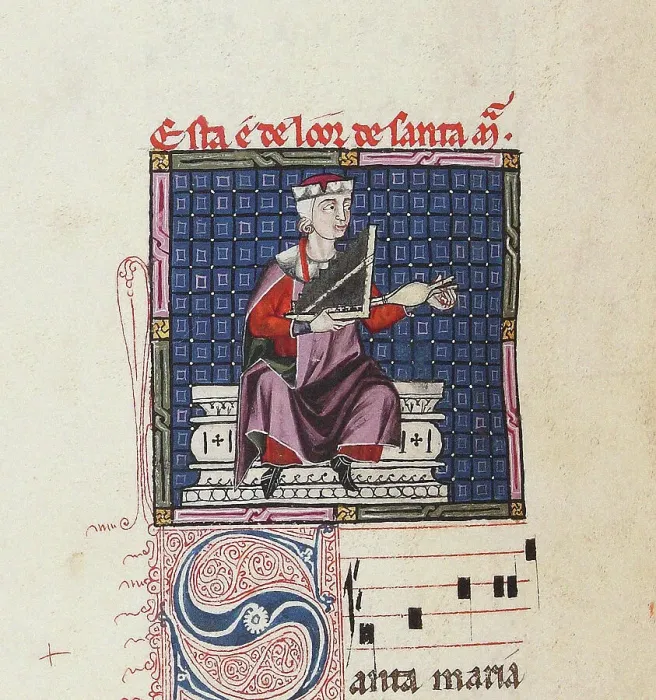 Esta é de loor de santa mª.
Santa maria